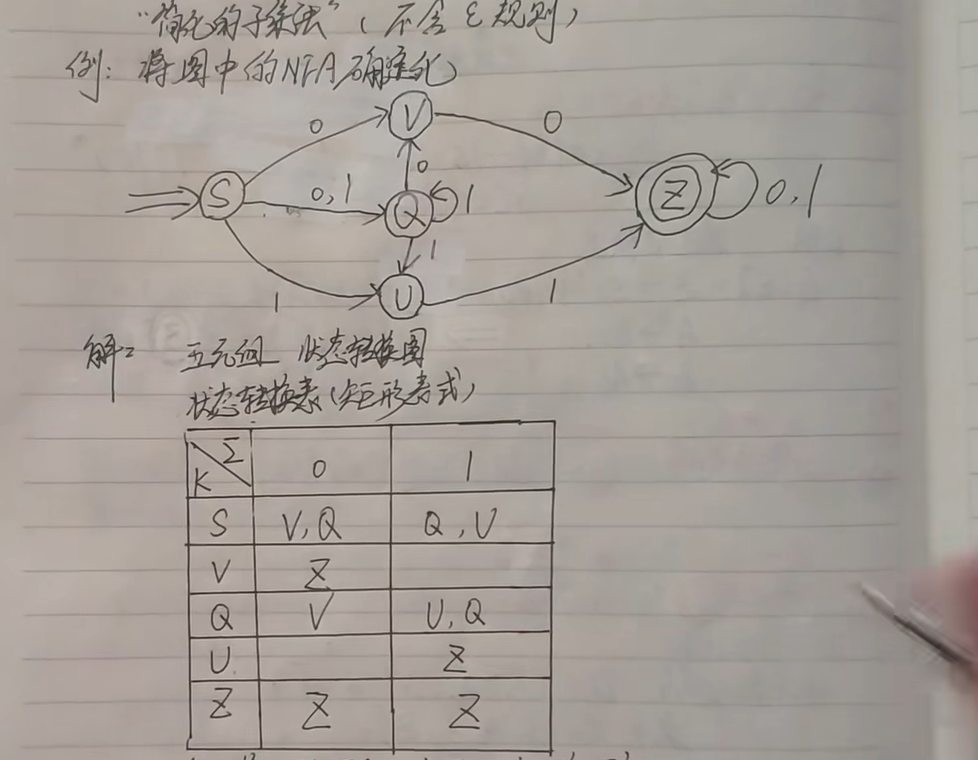 "简化的子集法"（不含ε规则）
例：将图中的NFA确定化
0 V 0
0
S 0,1 Q 1 Z 0,1
1
1 U 1
解： 五元组 状态转换图
状态转换表（矩形表式）
K Σ 0 1
S V,Q Q,U
V Z
Q V U,Q
U Z
Z Z Z